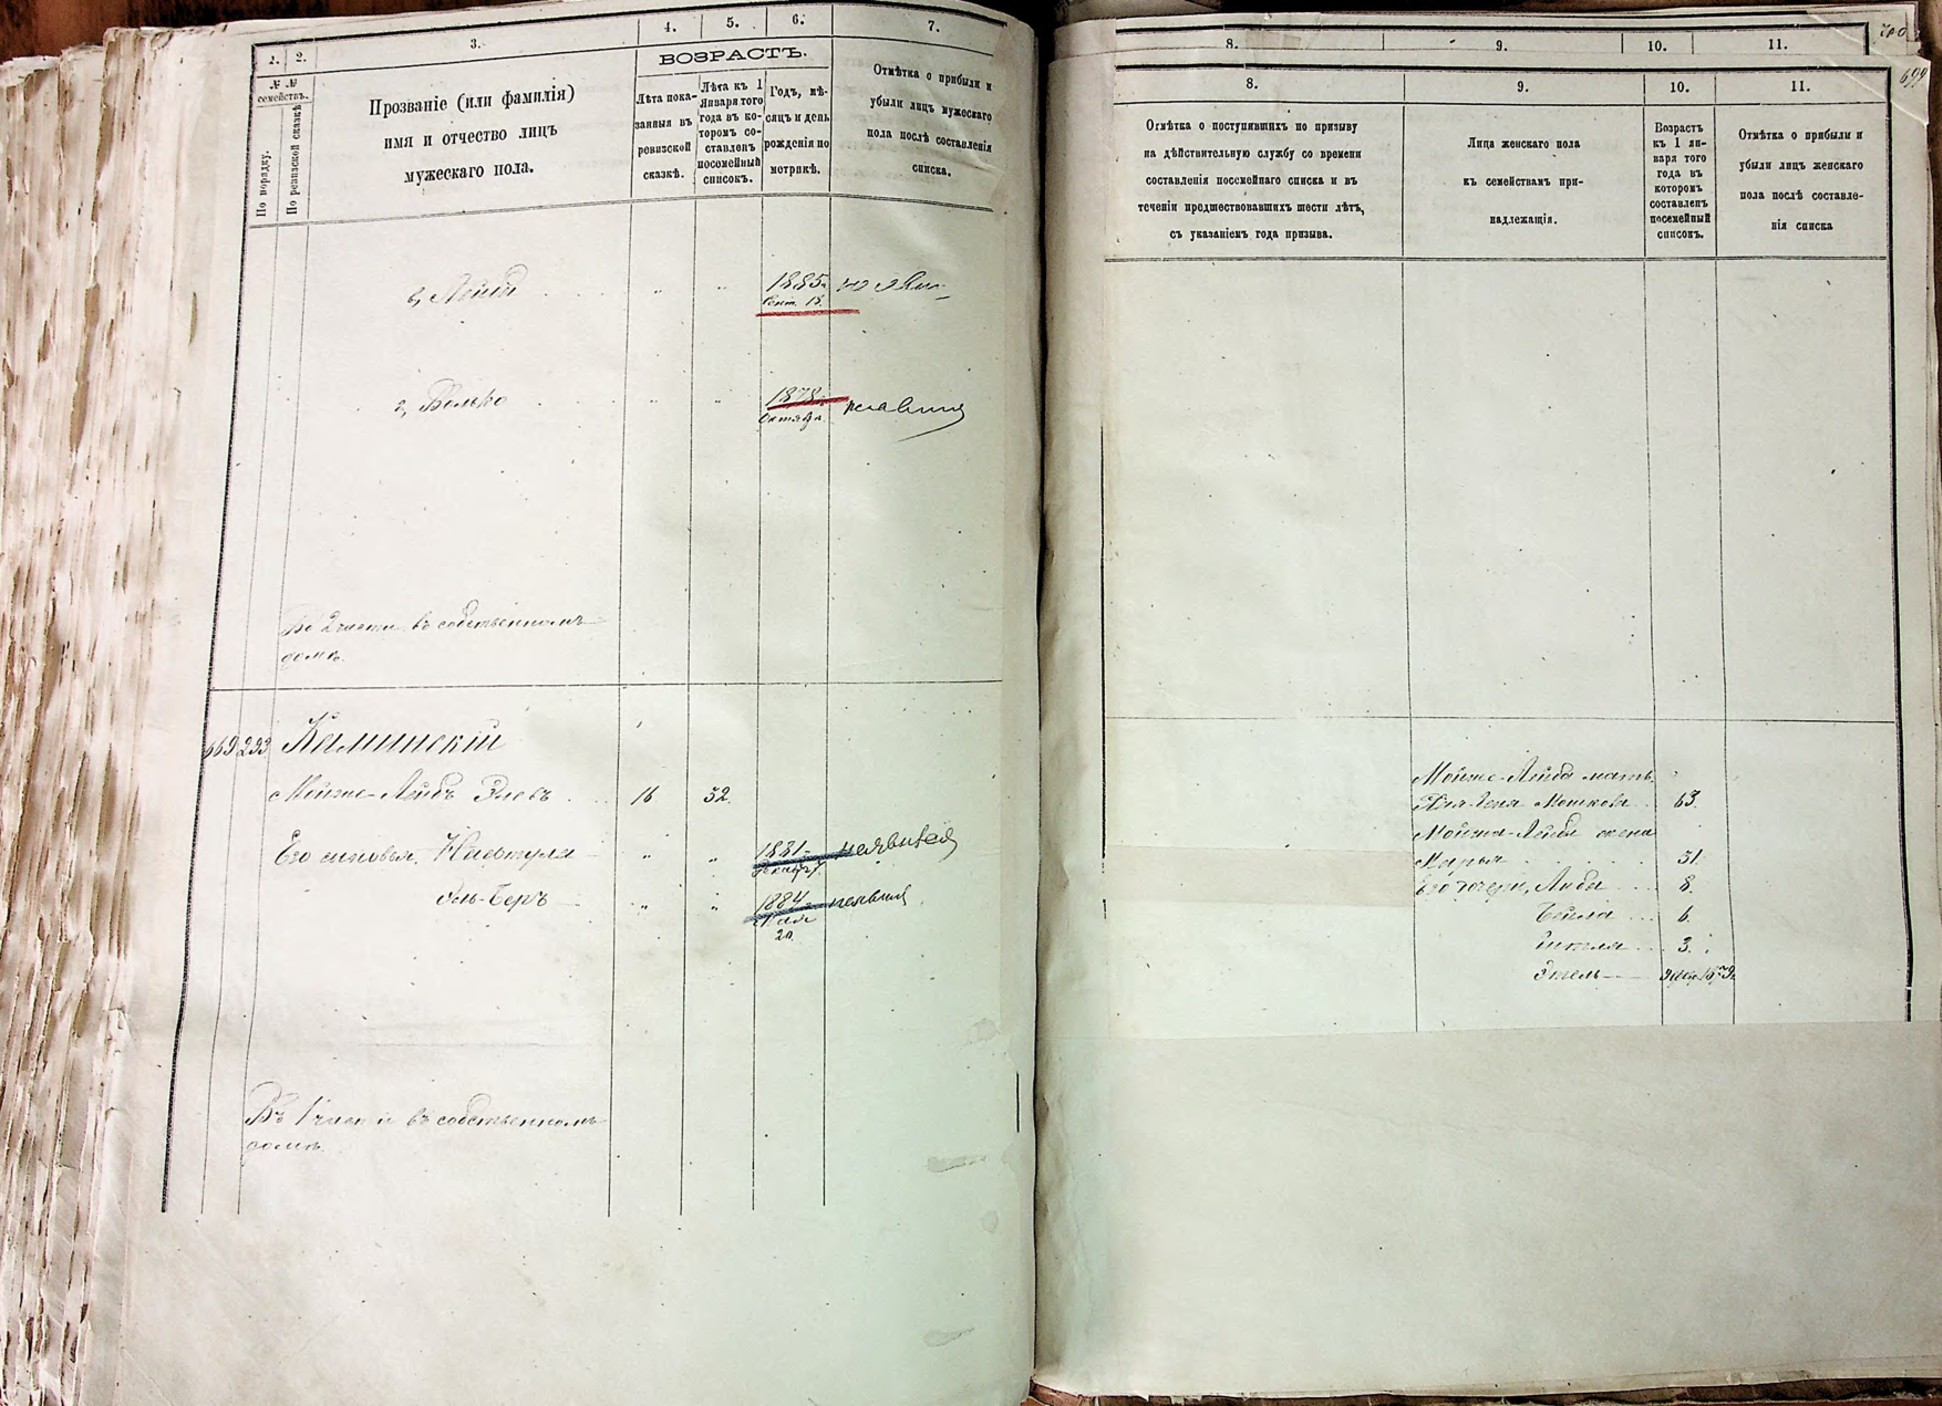 1.
2.
3.
4.
5.
6.
7.
ВОЗРАСТЪ.
№ №
семействъ.
По порядку.
По ревизской сказкѣ
Прозваніе (или фамилія)
имя и отчество лицъ
мужескаго пола.
Лѣта пока-
занныя въ
ревизской
сказкѣ.
Лѣта къ 1
Января того
года въ ко-
торомъ со-
ставленъ
посемейный
списокъ.
Годъ, мѣ-
сяцъ и день
рожденія по
метрикѣ.
Отмѣтка о прибыли и
убыли лицъ мужескаго
пола послѣ составленія
списка.
в, Лейба
1885
Сент. 18.
г, Волько
1878
Октября
неявил
Во 2 части въ собственномъ
домѣ.
669 293 Каминскій
Мойше-Лейбъ Элевъ 16 32.
Его сыновья, " " 1881 неявился
Эль-Беръ " " 1884 неявился
Мая
20.
Въ 1 части въ собственномъ
домѣ.
8.
9.
10.
11.
700
699
8.
9.
10.
11.
Отмѣтка о поступившихъ по призыву
на дѣйствительную службу со времени
составленія посемейнаго списка и въ
теченіи предшествовавшихъ шести лѣтъ,
съ указаніемъ года призыва.
Лица женскаго пола
къ семействамъ при-
надлежащія.
Возрастъ
къ 1 ян-
варя того
года въ
которомъ
составленъ
посемейный
списокъ.
Отмѣтка о прибыли и
убыли лицъ женскаго
пола послѣ составле-
нія списка
Мойше-Лейба мать
Мошкова 63.
Мойше-Лейба жена
Марья 31.
Его дочери, Либа 8.
Бейла 6.
Гитля 3.
Этель 1879